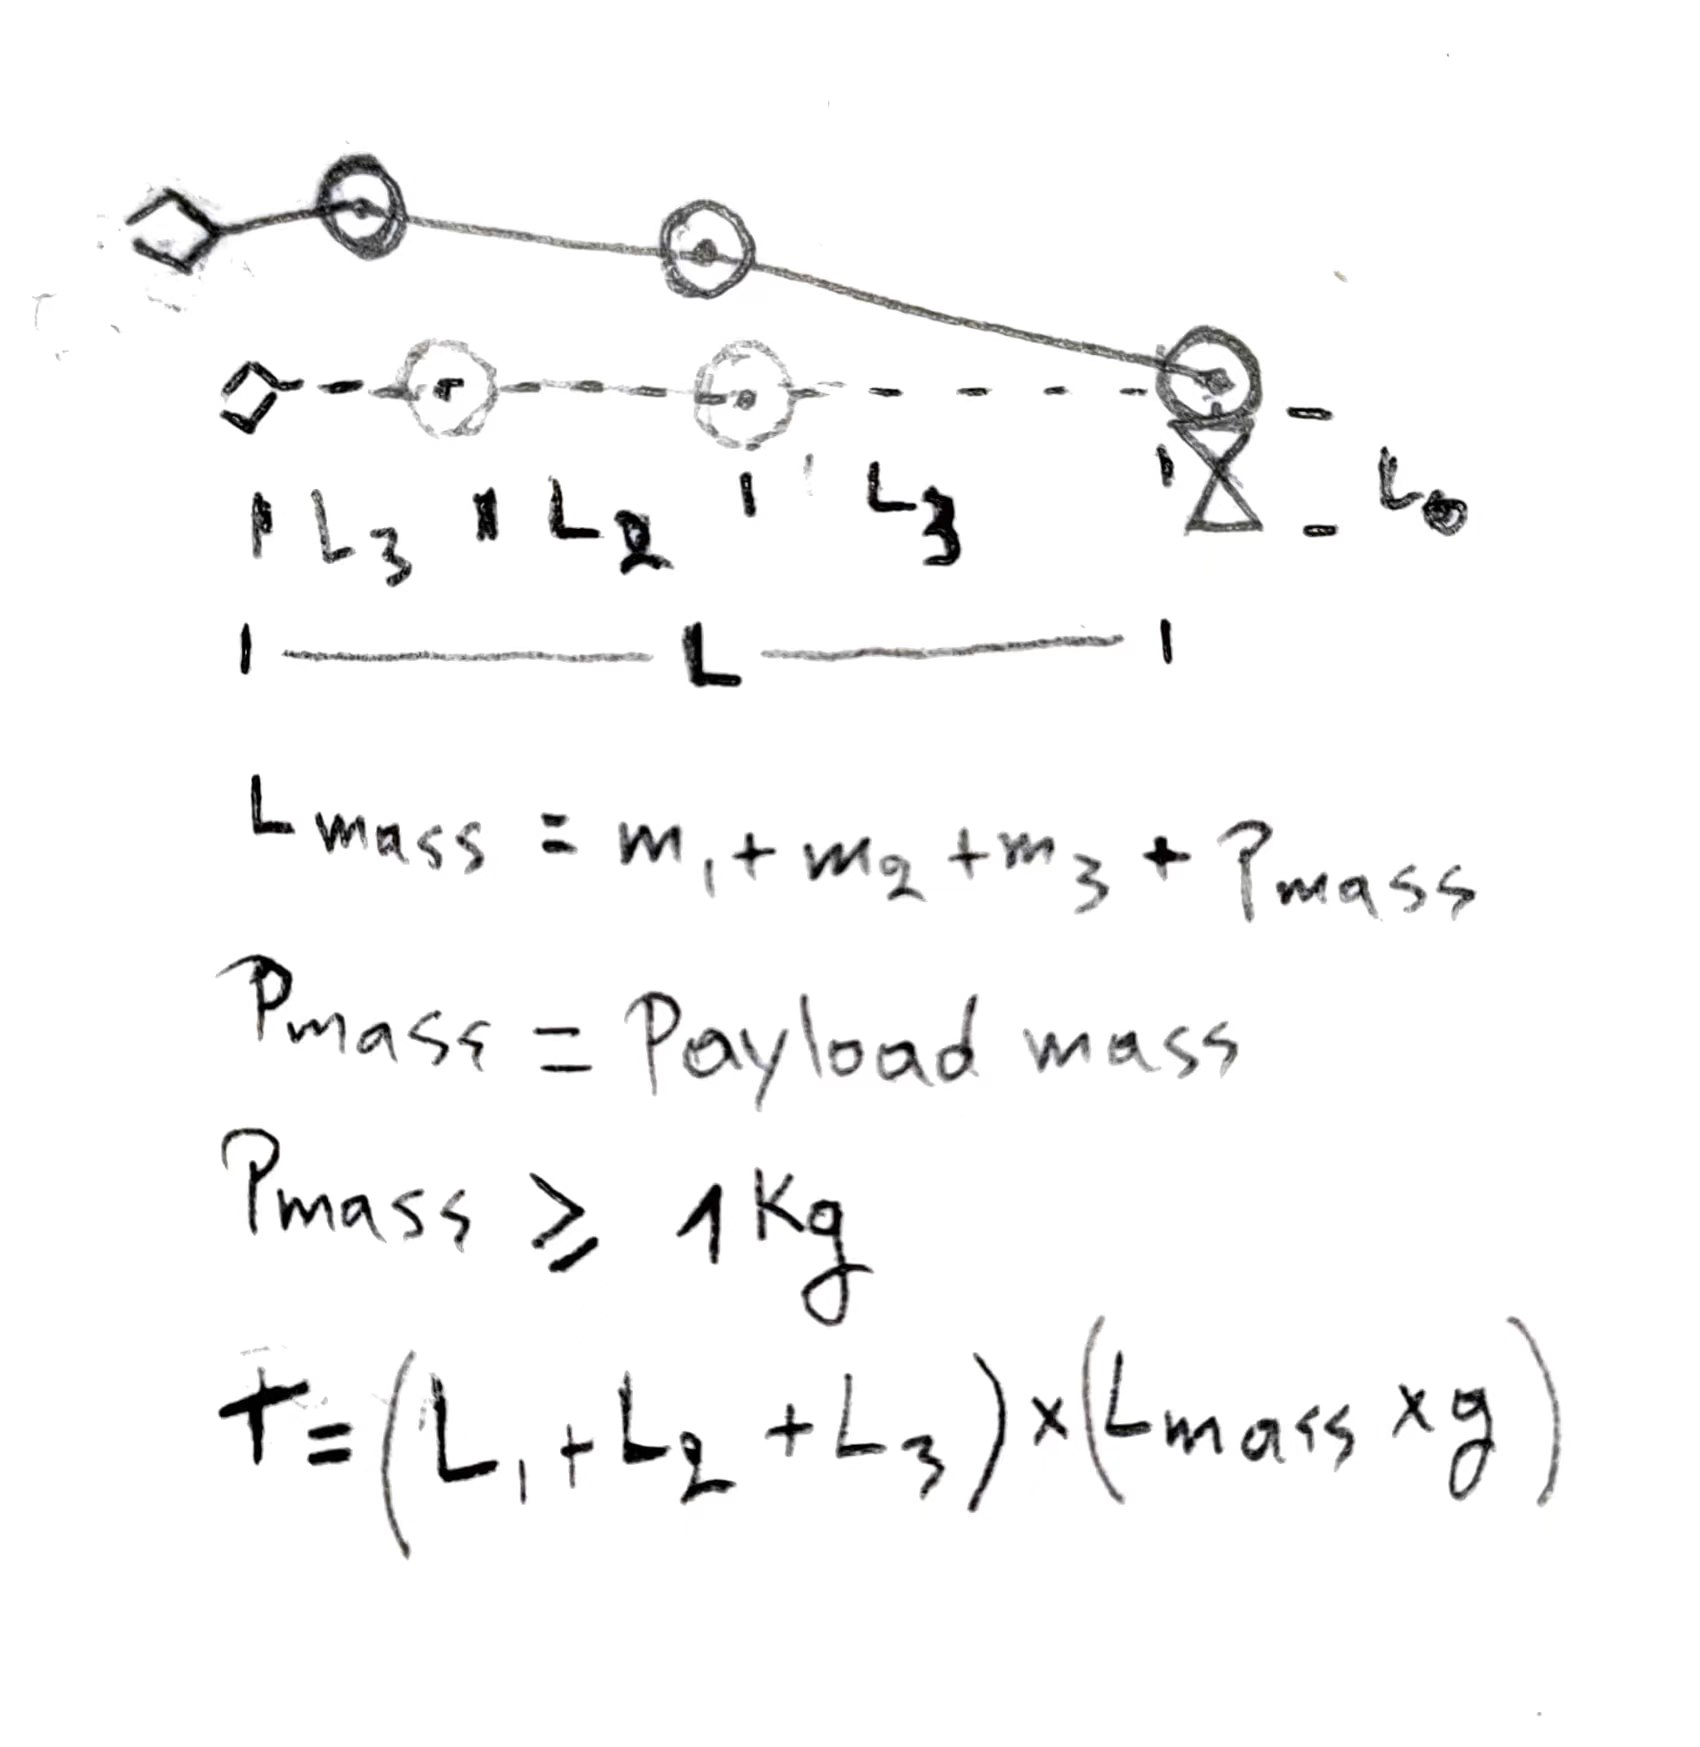 L₃ L₂ L₃ L₀
L
Lmass = m₁ + m₂ + m₃ + Pmass
Pmass = Payload mass
Pmass ≥ 1Kg
T = (L₁ + L₂ + L₃) × (Lmass × g)